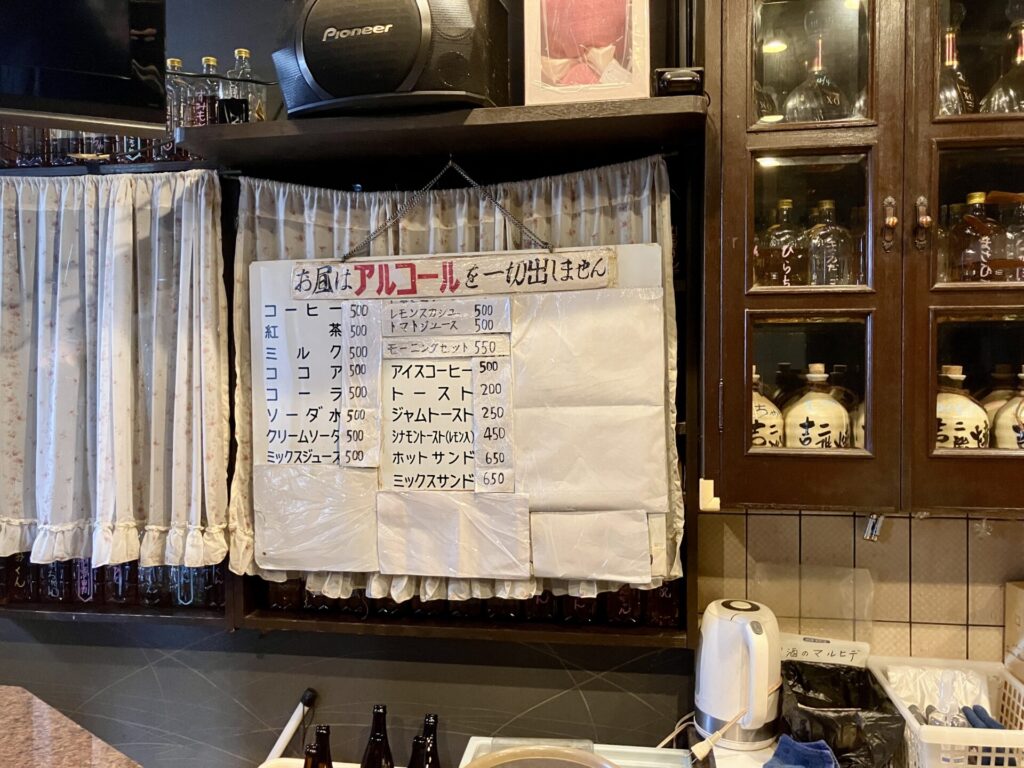 Pioneer
お昼はアルコールを一切出しません
コーヒー 500
紅茶 500
ミルク 500
ココア 500
コーラ 500
ソーダ水 500
クリームソーダ 500
ミックスジュース 500
レモンスカッシュ 500
トマトジュース 500
モーニングセット 550
アイスコーヒー 500
トースト 200
ジャムトースト 250
シナモントースト(レモン入) 450
ホットサンド 650
ミックスサンド 650
吉
吉
酒のマルヒデ